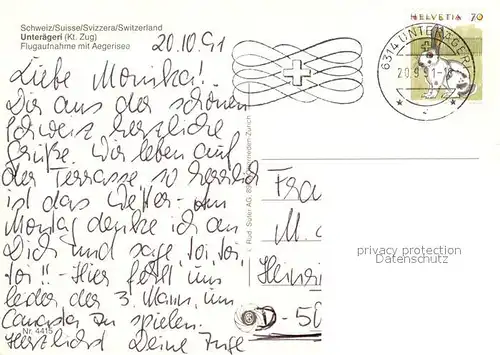 Schweiz/Suisse/Svizzera/Switzerland
Unterägeri (Kt. Zug)
Flugaufnahme mit Aegerisee
20.10.91
HELVETIA 70
6314 UNTERÄGERI
20.9.91-18
Liebe Monika!
Dir aus der schönen
Schweiz herzliche
Grüße. Wir leben auf
der Terrasse so herrlich
ist das Wetter. Am
Montag denke ich an
Dich und sage toi toi
toi!! - Hier fehlt uns
leider der 3. Mann, um
Canasta zu spielen.
Herzlichst Deine Inge
Nr. 4415
Rud. Suter AG, 89 Oberrieden-Zürich
Frau
M.
Heinri
D-50
privacy protection
Datenschutz